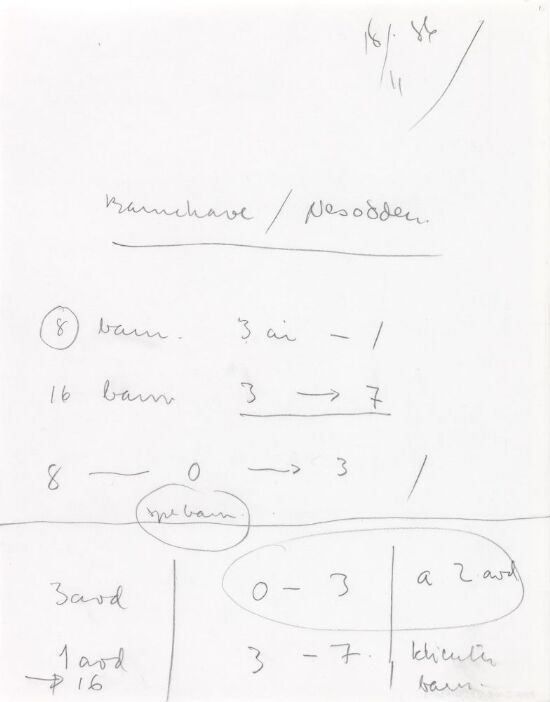 18/ 86
11
Barnehave / Nesodden.
8 barn. 3 år - /
16 barn 3 → 7
8 — 0 → 3 /
spebarn.
3 avd 0 - 3 a 2 avd
1 avd 3 - 7.
→ 16 barn.